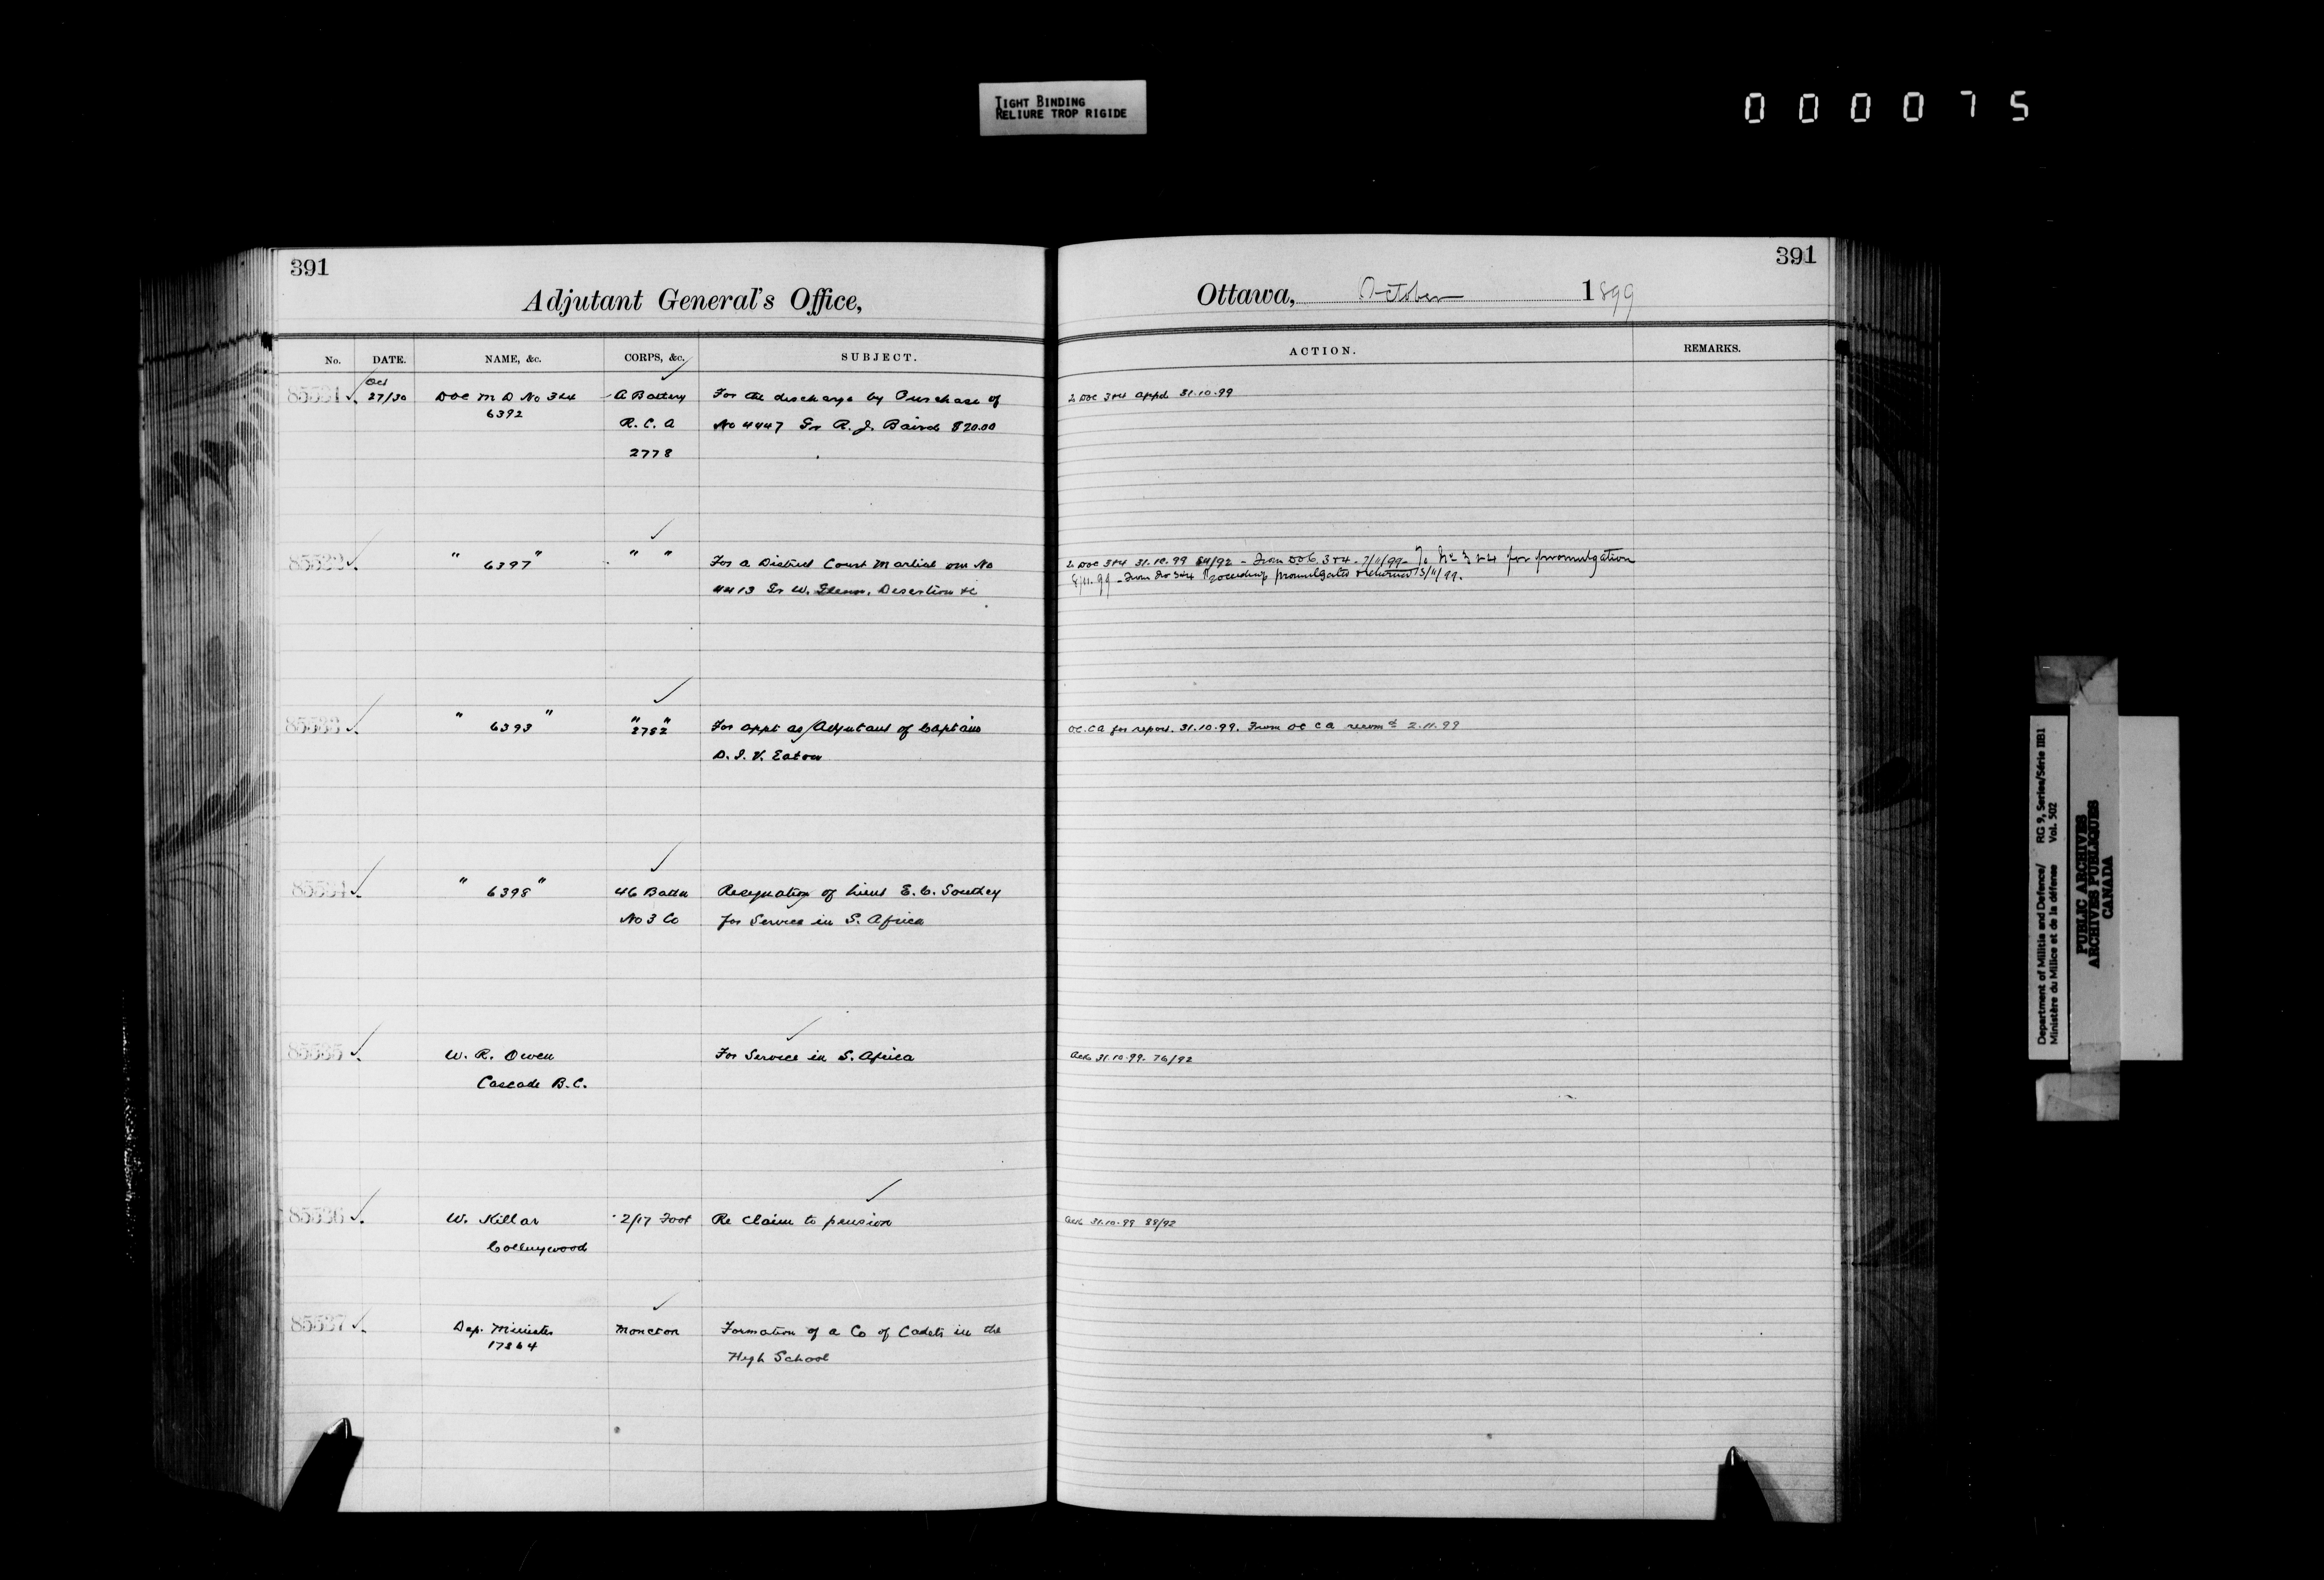 TIGHT BINDING
RELIURE TROP RIGIDE
000075
391
391
Adjutant General's Office,
Ottawa, October 1899
No. DATE. NAME, &c. CORPS, &c. SUBJECT. ACTION. REMARKS.
Oct
85531 27/30 DOC M D No 3&4 A Battery For the discharge by Purchase of 2 DOC 3&4 appd 31.10.99
6392 R. C. A No 4447 Gr R. J. Baird $20.00
2778
85532 " 6397 " " " For a District Court Martial on No 2 DOC 3&4 31.10.99 54/92 - From DOC. 3&4. 7/11/99 - To No 3&4 for promulgation
4413 Gr W. Desertion &c 8/11.99 - From No 3&4 Proceedings promulgated & returned 13/11/99.
85533 " 6393 " " 2782 " For appt as Adjutant of Captain OC. CA for report. 31.10.99. From OC CA recomd 2.11.99
D. I. V. Eaton
85534 " 6398 " 46 Battn Resignation of Lieut E. C. Southey
No 3 Co for Service in S. Africa
85535 W. R. Owen For Service in S. Africa ack 31.10.99. 76/92
Cascade B.C.
85536 W. Killar 2/17 Foot Re claim to pension ack 31.10.99 88/92
Collingwood
85537 Dep. Minister Moncton Formation of a Co of Cadets in the
17364 High School
Department of Militia and Defence/ RG 9, Series/Série IIB1
Ministère du Milice et de la défense Vol. 502
PUBLIC ARCHIVES
ARCHIVES PUBLIQUES
CANADA